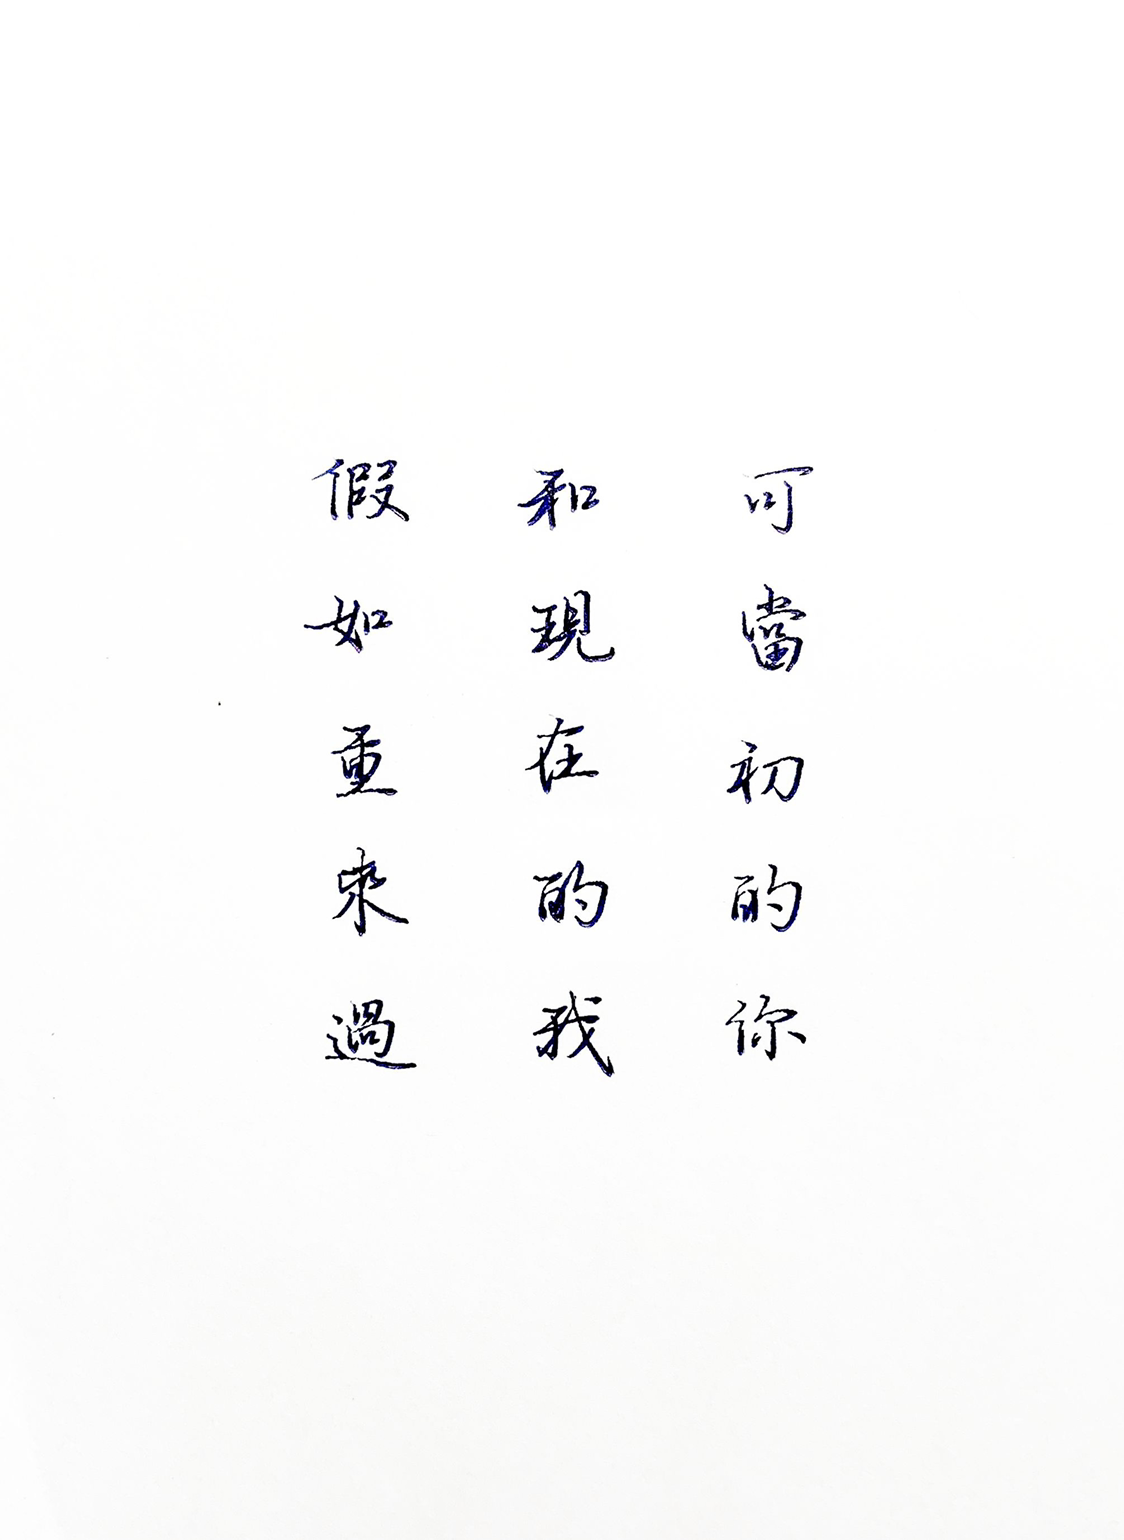 可當初的你
和現在的我
假如重來過